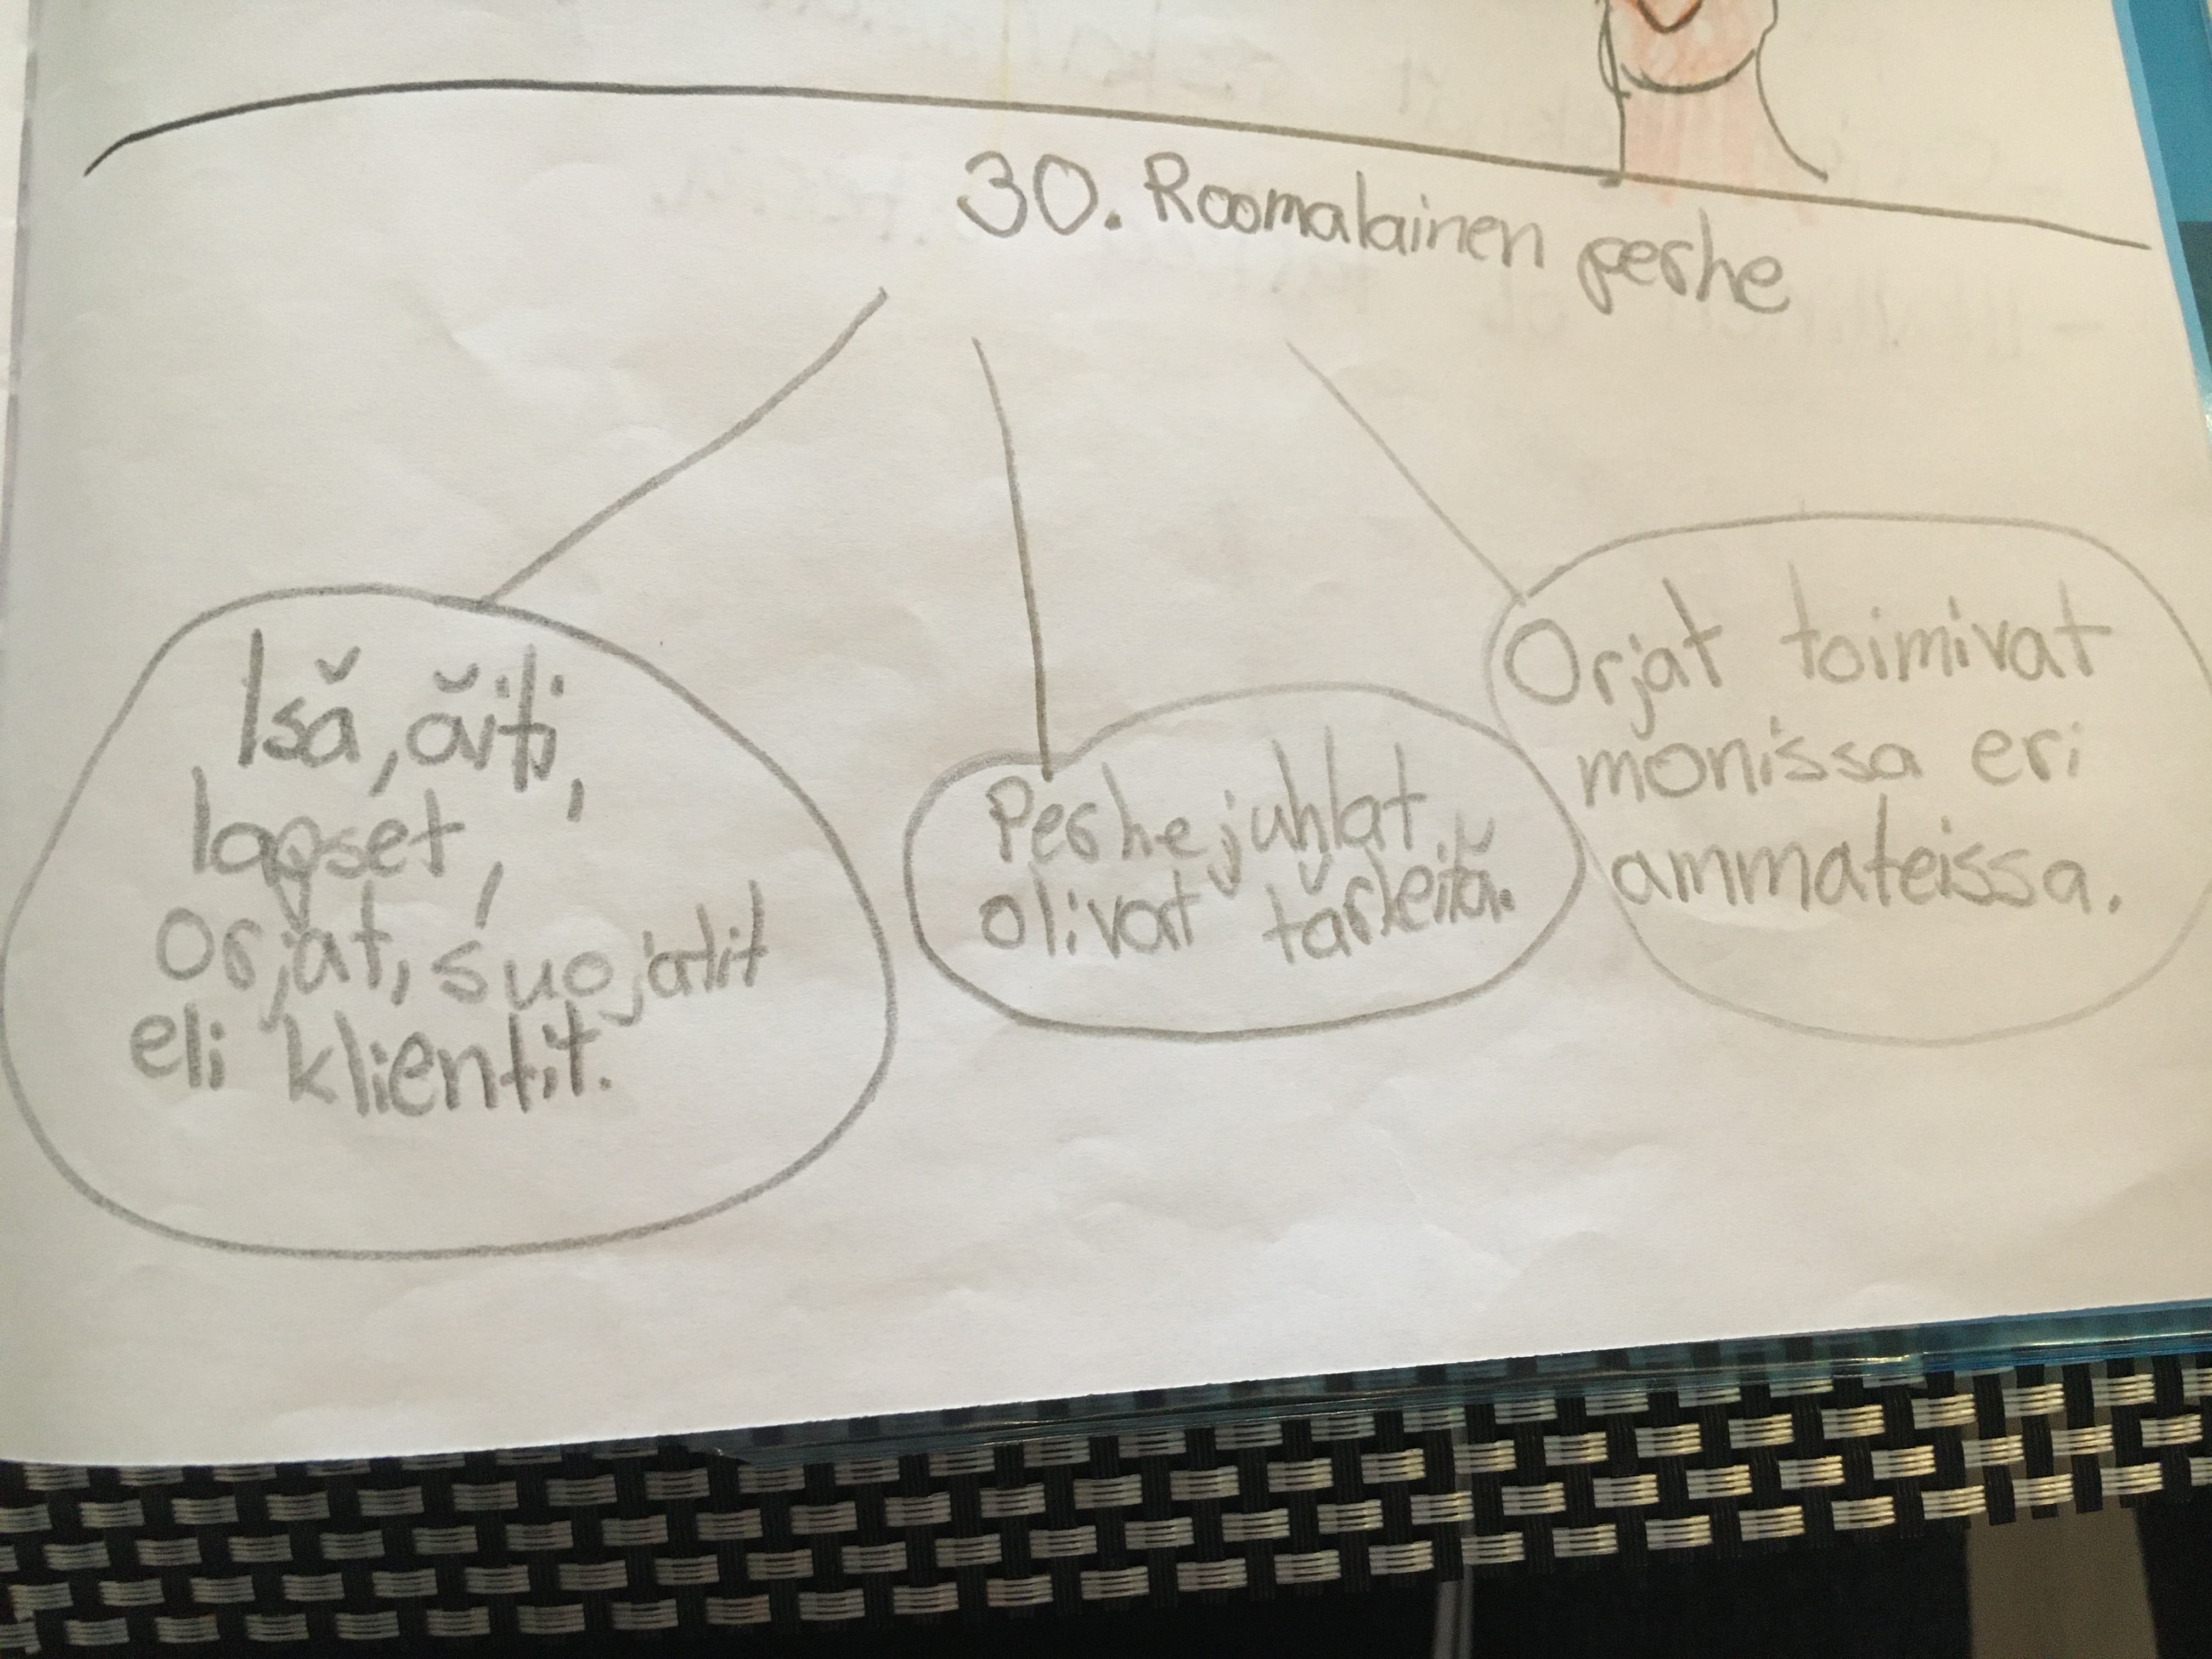 30. Roomalainen perhe
Isä, äiti,
lapset,
orjat, suojatit
eli klientit.
Perhejuhlat
olivat tärkeitä.
Orjat toimivat
monissa eri
ammateissa.